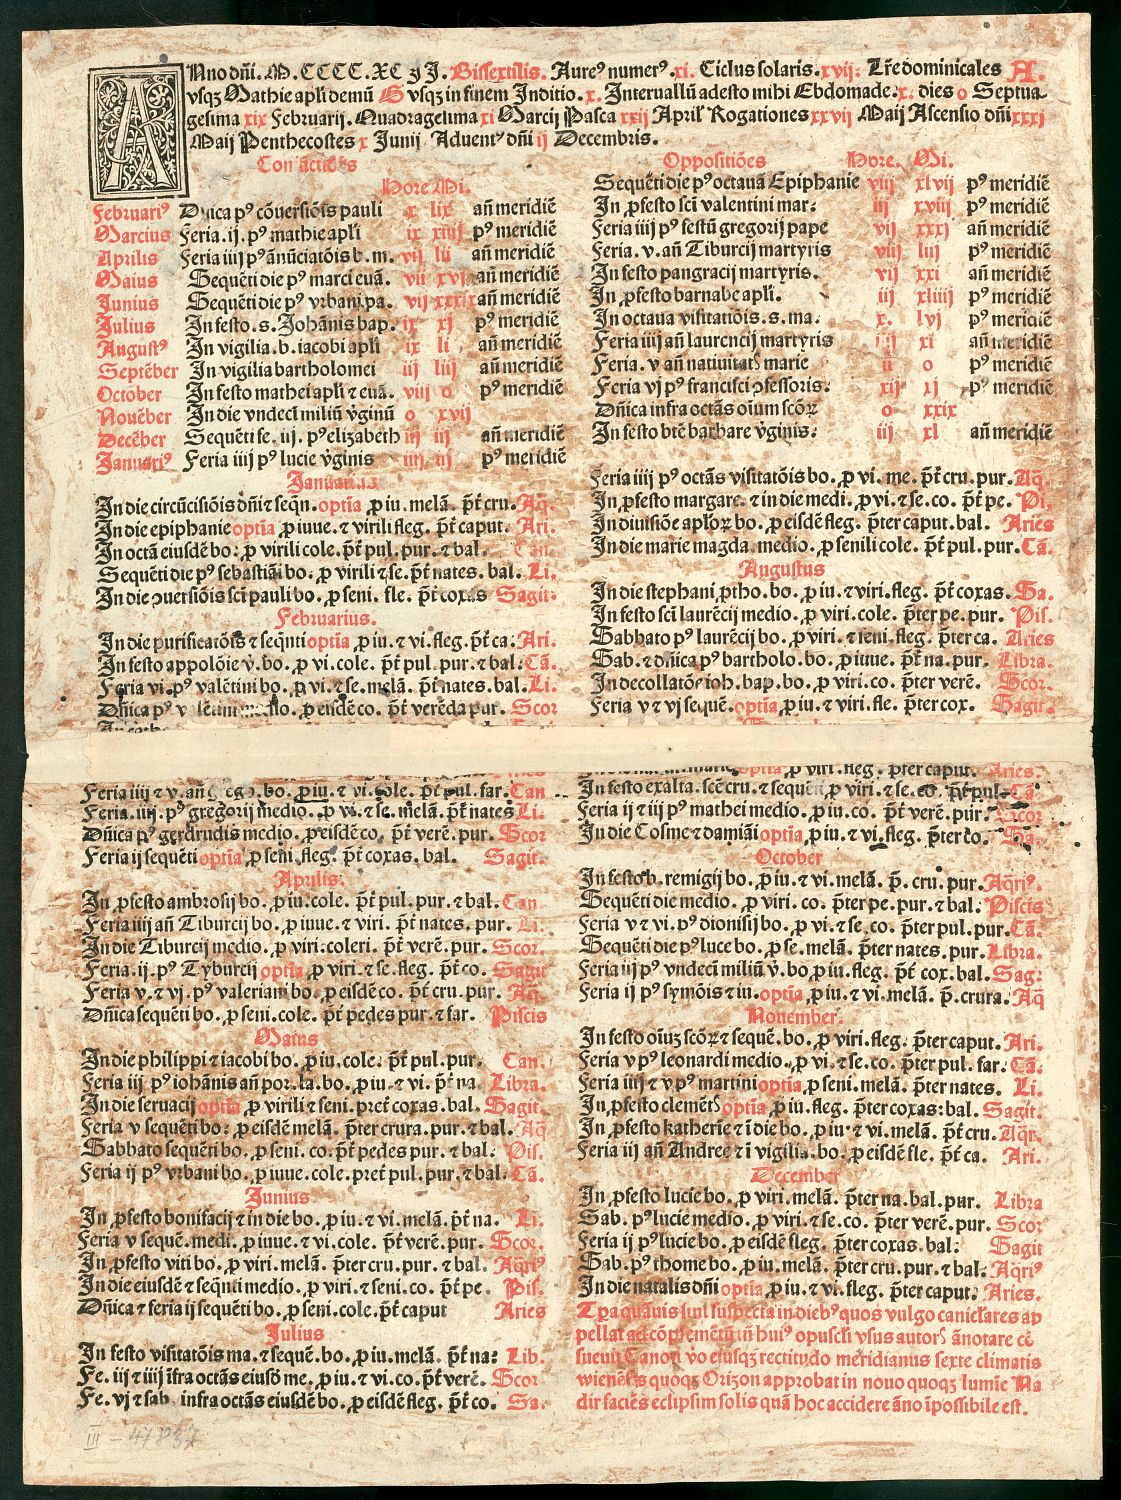 Anno dñi. M.CCCC.XC ij J. Bissextilis. Aureꝰ numerꝰ.xi. Ciclus solaris.xvij: Lr̃e dominicales A.
vsqꝫ Mathie apl̃i demũ G vsqꝫ in finem Inditio.x. Interuallũ adesto mihi Ebdomade.x: dies o Septua
gesima xix Februarij. Quadragesima xi Marcij Pasca xxij April̃ Rogationes xxvij Maij Ascensio dñi xxxj
Maij Penthecostes x Junij Aduentꝰ dñi ij Decembris.
Hore Mi.
Februariꝰ Dñica pꝰ cõuersiõis pauli x lix añ meridiẽ
Marcius Feria.ij.pꝰ mathie apl̃i ix xiiij pꝰ meridiẽ
Aprilis Feria iiij pꝰ ãnũciatõis b.m. vij lii añ meridiẽ
Maius Sequẽti die pꝰ marci euã. vii xvj añ meridiẽ
Junius Sequẽti die pꝰ vrbani pa. vij xxxix añ meridiẽ
Julius In festo.s.Johãnis bap. ix xj pꝰ meridiẽ
Augustꝰ In vigilia.b.iacobi apl̃i ix li añ meridiẽ
Septẽber In vigilia bartholomei iij liij añ meridiẽ
October In festo mathei apl̃i ⁊ euã. viij o pꝰ meridiẽ
Nouẽber In die vndeci miliũ ṽginũ o xvij
Decẽber Sequẽti fe.iij.pꝰ elizabeth iij iij añ meridiẽ
Januariꝰ Feria iiij pꝰ lucie ṽginis iiij ij pꝰ meridiẽ
Januarius
In die circũcisiõis dñi ⁊ seqñ.optĩa ꝓ iu.melã.p̃t cru.Aq̃.
In die epiphanie optĩa ꝓ iuue.⁊ virili fleg.p̃t caput. Ari.
In octã eiusdẽ bo: ꝓ virili cole.p̃t pul.pur.⁊ bal. Can.
Sequẽti die pꝰ sebastiãi bo.ꝓ virili ⁊ se.p̃t nates.bal. Li.
In die ꝯuersiõis sc̃i pauli bo.ꝓ seni.fle.p̃t coxas Sagit.
Februarius.
In die purificatõis ⁊ seqñti optĩa ꝓ iu.⁊ vi.fleg.p̃t ca: Ari.
In festo appolõie ṽ.bo.ꝓ vi.cole.p̃t pul.pur.⁊ bal: Cã.
Feria vi.pꝰ valẽtini bo.ꝓ vi.⁊ se.melã.p̃t nates.bal. Li.
Dñica pꝰ valẽtini medio.ꝓ eisdẽ co.p̃t verẽda pur. Scor
Feria iiij ⁊ v.añ bo.ꝓ iu.⁊ vi.cole.p̃t pul.far.Can
Feria.iiij.pꝰ gregorij medio.ꝓ vi.⁊ se.melã.p̃t nates Li.
Dñica pꝰ gerdrudis medio.ꝓ eisdẽ co.p̃t verẽ.pur. Scor
Feria ij sequẽti optĩa ꝓ seni.fleg.p̃t coxas.bal. Sagit.
Aprilis.
In ꝓfesto ambrosij bo.ꝓ iu.cole.p̃t pul.pur.⁊ bal. Can
Feria iiij añ Tiburcij bo.ꝓ iuue.⁊ viri.p̃t nates.pur. Li.
In die Tiburcij medio.ꝓ viri.coleri.p̃t verẽ.pur. Scor.
Feria.ij.pꝰ Tyburcij optĩa ꝓ viri.⁊ se.fleg.p̃t co. Sagit
Feria v.⁊ vj.pꝰ valeriani bo.ꝓ eisdẽ co.p̃t cru.pur. Aq̃
Dñica sequẽti bo.ꝓ seni.cole.p̃t pedes pur.⁊ far. Piscis
Maius
In die philippi ⁊ iacobi bo.ꝓ iu.cole.p̃t pul.pur. Can.
Feria iij pꝰ iohãnis añ por.la.bo.ꝓ iu.⁊ vi.p̃t na. Libra.
In die seruacij optĩa ꝓ virili ⁊ seni.pret coxas.bal. Sagit.
Feria v sequẽti bo: ꝓ eisdẽ melã.p̃ter crura.pur.⁊ bal. Aq̃
Sabbato sequẽti bo.ꝓ seni.co.p̃t pedes pur.⁊ bal. Pis.
Feria ij pꝰ vrbani bo.ꝓ iuue.cole.pret pul.pur.⁊ bal. Cã.
Junius
In ꝓfesto bonifacij ⁊ in die bo.ꝓ iu.⁊ vi.melã.p̃t na. Li.
Feria v sequẽ.medi.ꝓ iuue.⁊ vi.cole.p̃t verẽ.pur. Scor.
In ꝓfesto viti bo.ꝓ viri.melã.p̃ter cru.pur.⁊ bal. Aq̃riꝰ
In die eiusdẽ ⁊ seqñti medio.ꝓ viri.⁊ seni.co.p̃t pe. Pis.
Dñica ⁊ feria ij sequẽti bo.ꝓ seni.cole.p̃t caput Aries
Julius
In festo visitatõis ma.⁊ sequẽ.bo.ꝓ iu.melã.p̃t na: Lib.
Fe.iij ⁊ iiij ĩfra octãs eiusdẽ me.ꝓ iu.⁊ vi.co.p̃t verẽ. Scor.
Fe.vj ⁊ sab infra octãs eiusdẽ bo.ꝓ eisdẽ fleg.p̃t co. Sa.
III - 47857
Oppositiões Hore. Mi.
Sequẽti die pꝰ octauã Epiphanie viij xlvij pꝰ meridiẽ
In ꝓfesto sc̃i valentini mar: iij xviij pꝰ meridiẽ
Feria iiij pꝰ festũ gregorij pape vij xxxj añ meridiẽ
Feria.v.añ Tiburcij martyris viij liij pꝰ meridiẽ
In festo pangracij martyris. vij xxi añ meridiẽ
In ꝓfesto barnabe apl̃i. iij xliiij pꝰ meridiẽ
In octaua visitatiõis.s.ma. x. lvj pꝰ meridiẽ
Feria iiij añ laurencij martyris xi añ meridiẽ
Feria.v añ natiuitat̃ marie ii o pꝰ meridiẽ
Feria vj pꝰ francisci ꝯfessoris. xij xj pꝰ meridiẽ
Dñica infra octãs oĩum scõꝝ o xxix
In festo btẽ barbare ṽginis: iij xl añ meridiẽ
Feria iiij pꝰ octãs visitatõis bo.ꝓ vi.me.p̃t cru.pur.Aq̃.
In ꝓfesto margare.⁊ in die medi.ꝓ vi.⁊ se.co.p̃t pe. Pi.
In diuisiõe apl̃oꝝ bo.ꝓ eisdẽ fleg.p̃ter caput.bal. Aries
In die marie magda.medio.ꝓ senili cole.p̃t pul.pur.Cã.
Augustus
In die stephani ꝓtho.bo.ꝓ iu.⁊ viri.fleg.p̃t coxas.Sa.
In festo sc̃i laurẽcij medio.ꝓ viri.cole.p̃ter pe.pur. Pis.
Sabbato pꝰ laurẽcij bo.ꝓ viri.⁊ seni.fleg.p̃ter ca. Aries
Sab.⁊ dñica pꝰ bartholo.bo.ꝓ iuue.p̃t na.pur. Libra.
In decollatõe ioh.bap.bo.ꝓ viri.co.p̃ter verẽ. Scor.
Feria v ⁊ vj sequẽ.optĩa ꝓ iu.⁊ viri.fle.p̃ter cox. Sagit.
optĩa ꝓ viri.fleg.p̃ter caput. Aries.
In festo exalta.scẽ cru.⁊ sequẽti ꝓ viri.⁊ se.co.p̃t pul. Cã.
Feria ij ⁊ iij pꝰ mathei medio.ꝓ iu.co.p̃t verẽ.pur. Scor
In die Cosme ⁊ damiãi optĩa ꝓ iu.⁊ vi.fleg.p̃ter co. Sa.
October
In festo b.remigij bo.ꝓ iu.⁊ vi.melã.p̃.cru.pur.Aq̃riꝰ.
Sequẽti die medio.ꝓ viri.co.p̃ter pe.pur.⁊ bal. Piscis
Feria v ⁊ vi.pꝰ dionisij bo.ꝓ vi.⁊ se.co.p̃ter pul.pur.Cã.
Sequẽti die pꝰ luce bo.ꝓ se.melã.p̃ter nates.pur. Libra.
Feria iij pꝰ vndeci miliũ ṽ.bo.ꝓ iu.fleg.p̃t cox.bal.Sag:
Feria ij pꝰ symõis ⁊ iu.optĩa ꝓ iu.⁊ vi.melã.p̃.crura. Aq̃
Nouember.
In festo oĩuꝫ scõꝝ ⁊ sequẽ.bo.ꝓ viri.fleg.p̃ter caput. Ari.
Feria v pꝰ leonardi medio.ꝓ vi.⁊ se.co.p̃ter pul.far. Cã.
Feria iiij ⁊ v pꝰ martini optĩa ꝓ seni.melã.p̃ter nates. Li.
In ꝓfesto clemẽt̃ optĩa ꝓ iu.fleg.p̃ter coxas:bal. Sagit.
In ꝓfesto katherĩe ⁊ ĩ die bo.ꝓ iu.⁊ vi.melã.p̃t cru. Aq̃r.
Feria iij añ Andree ⁊ ĩ vigilia.bo.ꝓ eisdẽ fle.p̃t ca. Ari.
December
In ꝓfesto lucie bo.ꝓ viri.melã.p̃ter na.bal.pur. Libra
Sab.pꝰ lucie medio.ꝓ viri.⁊ se.co.p̃ter verẽ.pur. Scor
Feria ij pꝰ lucie bo.ꝓ eisdẽ fleg.p̃ter coxas.bal: Sagit
Sab.pꝰ thome bo.ꝓ iu.melã.p̃ter cru.pur.⁊ bal: Aq̃riꝰ
In die natalis dñi optĩa ꝓ iu.⁊ vi.fleg.p̃ter caput: Aries.
Tp̃a quãuis sint suspecta in diebꝰ quos vulgo canicl̃ares ap
pellat ad cõplemẽtũ iñ huiꝰ opuscl̃i vsus autor̃ ãnotare cõ
sueuit Canon ṽo eiusqꝫ rectitudo meridianus sexte climatis
wienẽsis quoqꝫ Orizon approbat in nouo quoqꝫ lumĩe Na
dir faciẽs eclipsim solis quã hoc accidere ãno ĩpossibile est.